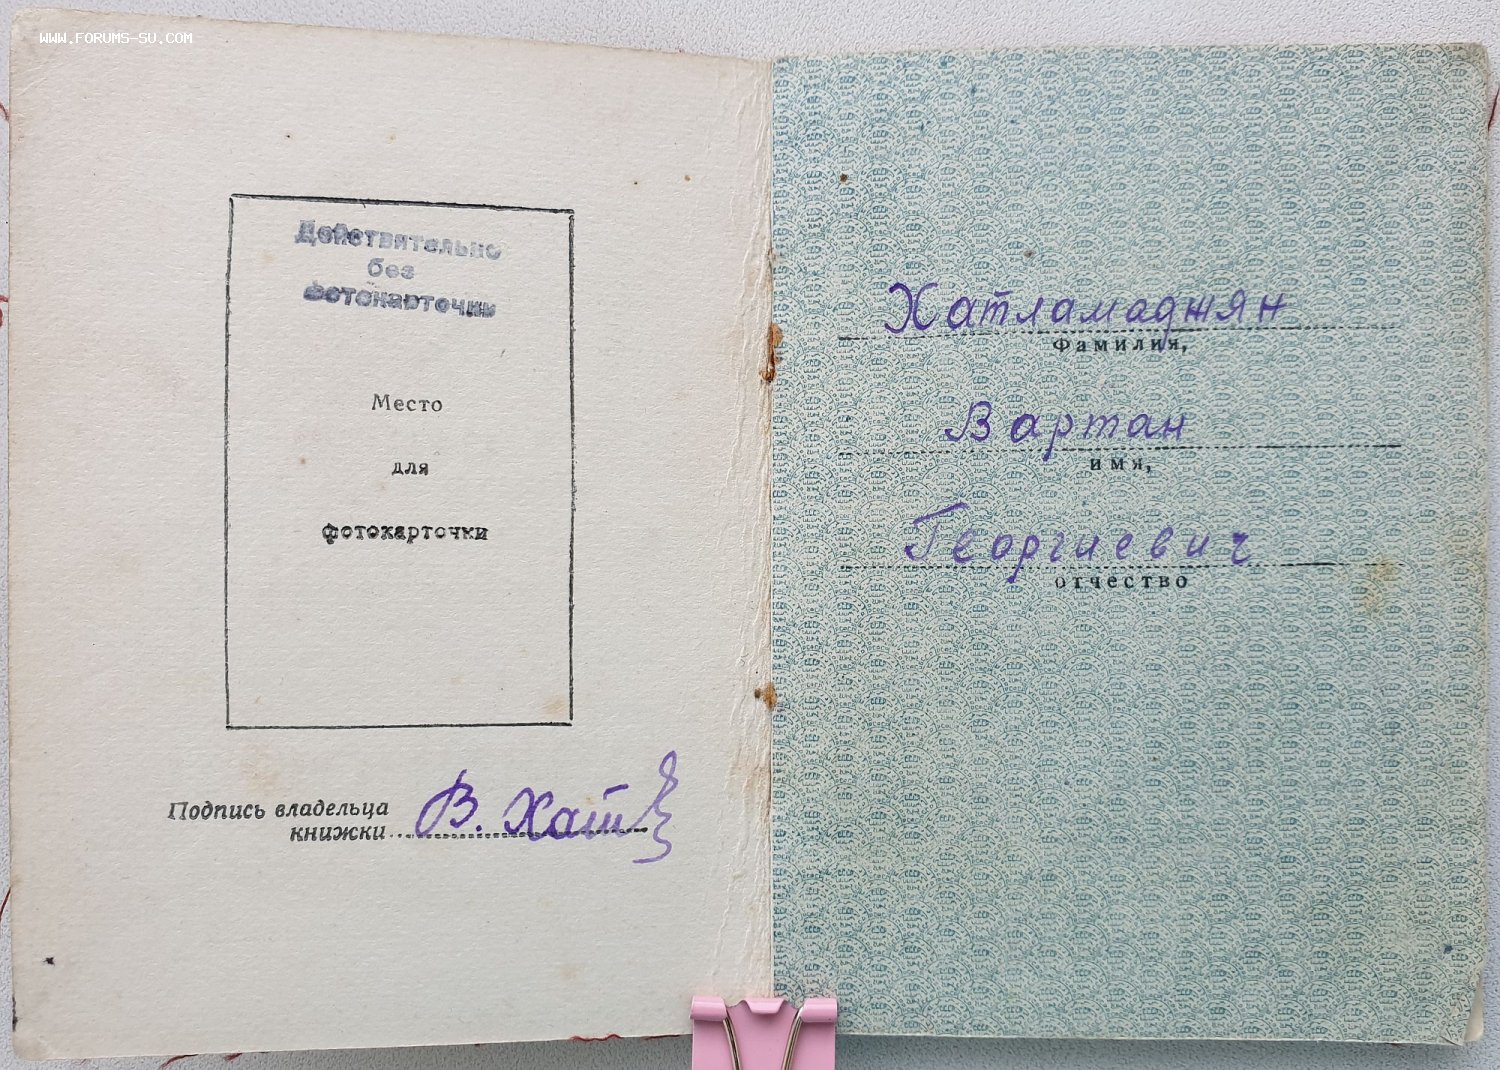 WWW.FORUMS-SU.COM
Действительно
без
фотокарточки
Место
для
фотокарточки
Подпись владельца
книжки
В. Хат
Хатламаджян
Фамилия,
Вартан
имя,
Георгиевич
отчество